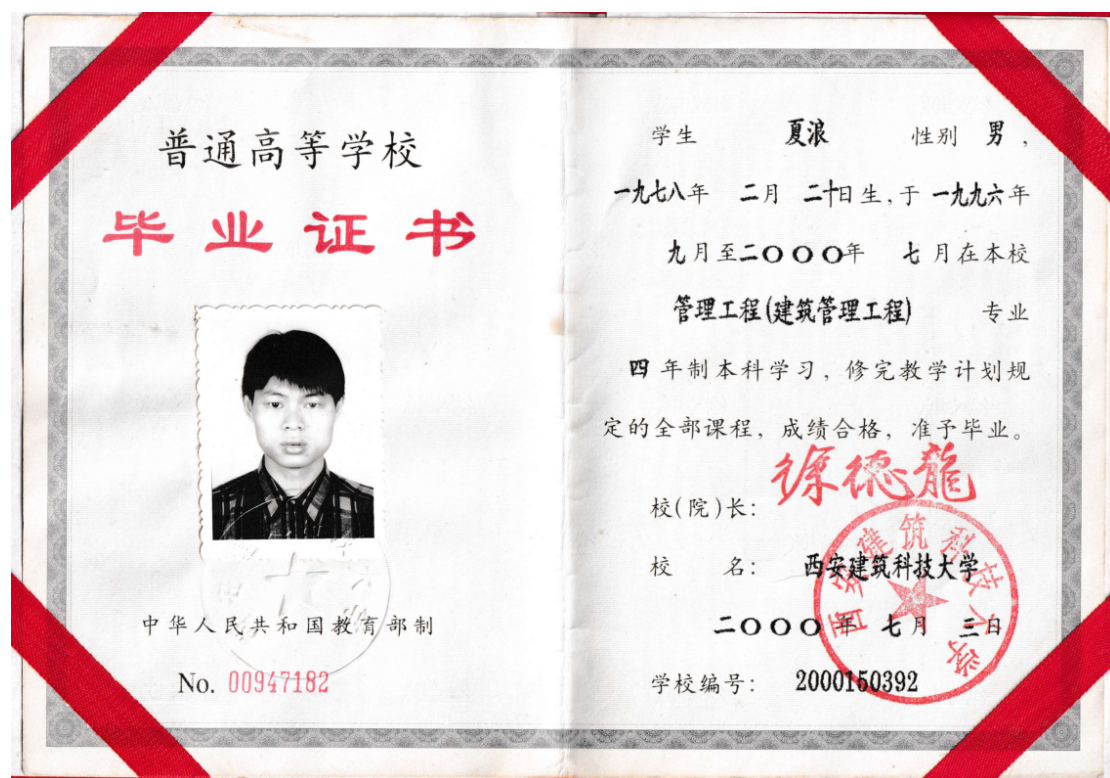 普通高等学校
毕业证书
中华人民共和国教育部制
No. 00947182
学生 夏浪 性别 男，
一九七八年 二月 二十日生，于 一九九六年
九月至二〇〇〇年 七月在本校
管理工程(建筑管理工程) 专业
四 年制本科学习，修完教学计划规
定的全部课程，成绩合格，准予毕业。
校(院)长： 徐德龍
校 名： 西安建筑科技大学
二〇〇〇年 七月 三日
学校编号： 2000150392
西安建筑科技大学